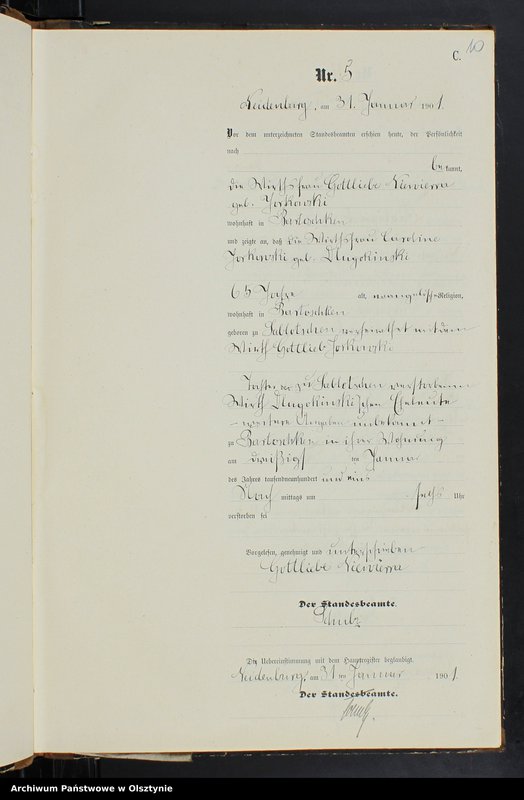 C. 10
Nr. 5
Neidenburg, am 31. Januar 1901.
Vor dem unterzeichneten Standesbeamten erschien heute, der Persönlichkeit
nach
bekannt,
die Wirthsfrau Gottliebe
geb. Jorkowski
wohnhaft in Bartoschken
und zeigte an, daß die Wirthsfrau Caroline
Jorkowski geb. Dlugokinski
65 Jahre alt, evangelisch Religion,
wohnhaft in Bartoschken
geboren zu Sablotschen verheirathet mit dem
Wirth Gottlieb Jorkowski
Tochter der zu Sablotschen verstorbenen
Wirth Dlugokinskischen Eheleute
– weitere Angaben unbekannt –
zu Bartoschken in ihrer Wohnung
am dreißigsten Januar
des Jahres tausendneunhundert und eins
Nachmittags um sechs Uhr
verstorben sei
Vorgelesen, genehmigt und unterschrieben
Gottliebe
Der Standesbeamte.
Schulz
Die Uebereinstimmung mit dem Hauptregister beglaubigt.
Neidenburg, am 31 ten Januar 1901.
Der Standesbeamte.
Schulz.
Archiwum Państwowe w Olsztynie